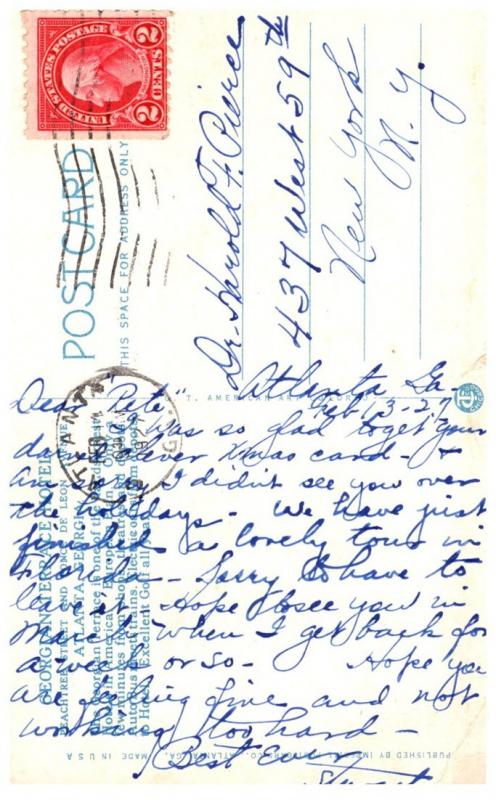 UNITED STATES POSTAGE
2 CENTS 2
POSTCARD
THIS SPACE FOR ADDRESS ONLY
Dr. Harold F. Pierce
437 West 59th
New York
N. Y.
C.T. AMERICAN ART COLORED
Atlanta Ga-
Feb 13-27
Dear "Pete"
was so glad to get your
clever Xmas card- &
I didn't see you over
the holidays- We have just
finished a lovely tour in
Florida- Sorry to have to
leave it Hope to see you in
March when I get back for
a week or so- Hope you
are feeling fine and not
working too hard-
Best
GEORGIAN TERRACE HOTEL
PEACHTREE STREET AND PONCE DE LEON AVENUE
ATLANTA, GEORGIA
Georgian Terrace is one of the
few minutes from shops, theatres and
Excellent Golf all
PUBLISHED BY IMPERIAL POSTCARD CO., ATLANTA, GA. MADE IN U S A